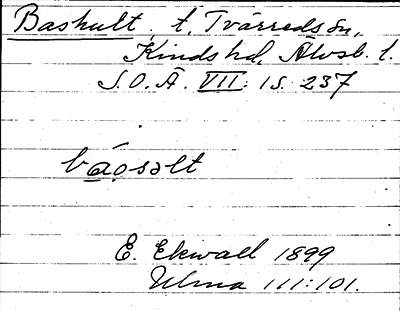 Baskult, t. Tvärreds sn,
Kinds hd, Älvsb. l.
S.O.Ä. VII: 1 s. 237
báosəlt
E. Ekwall 1899
Ulma 111:101.